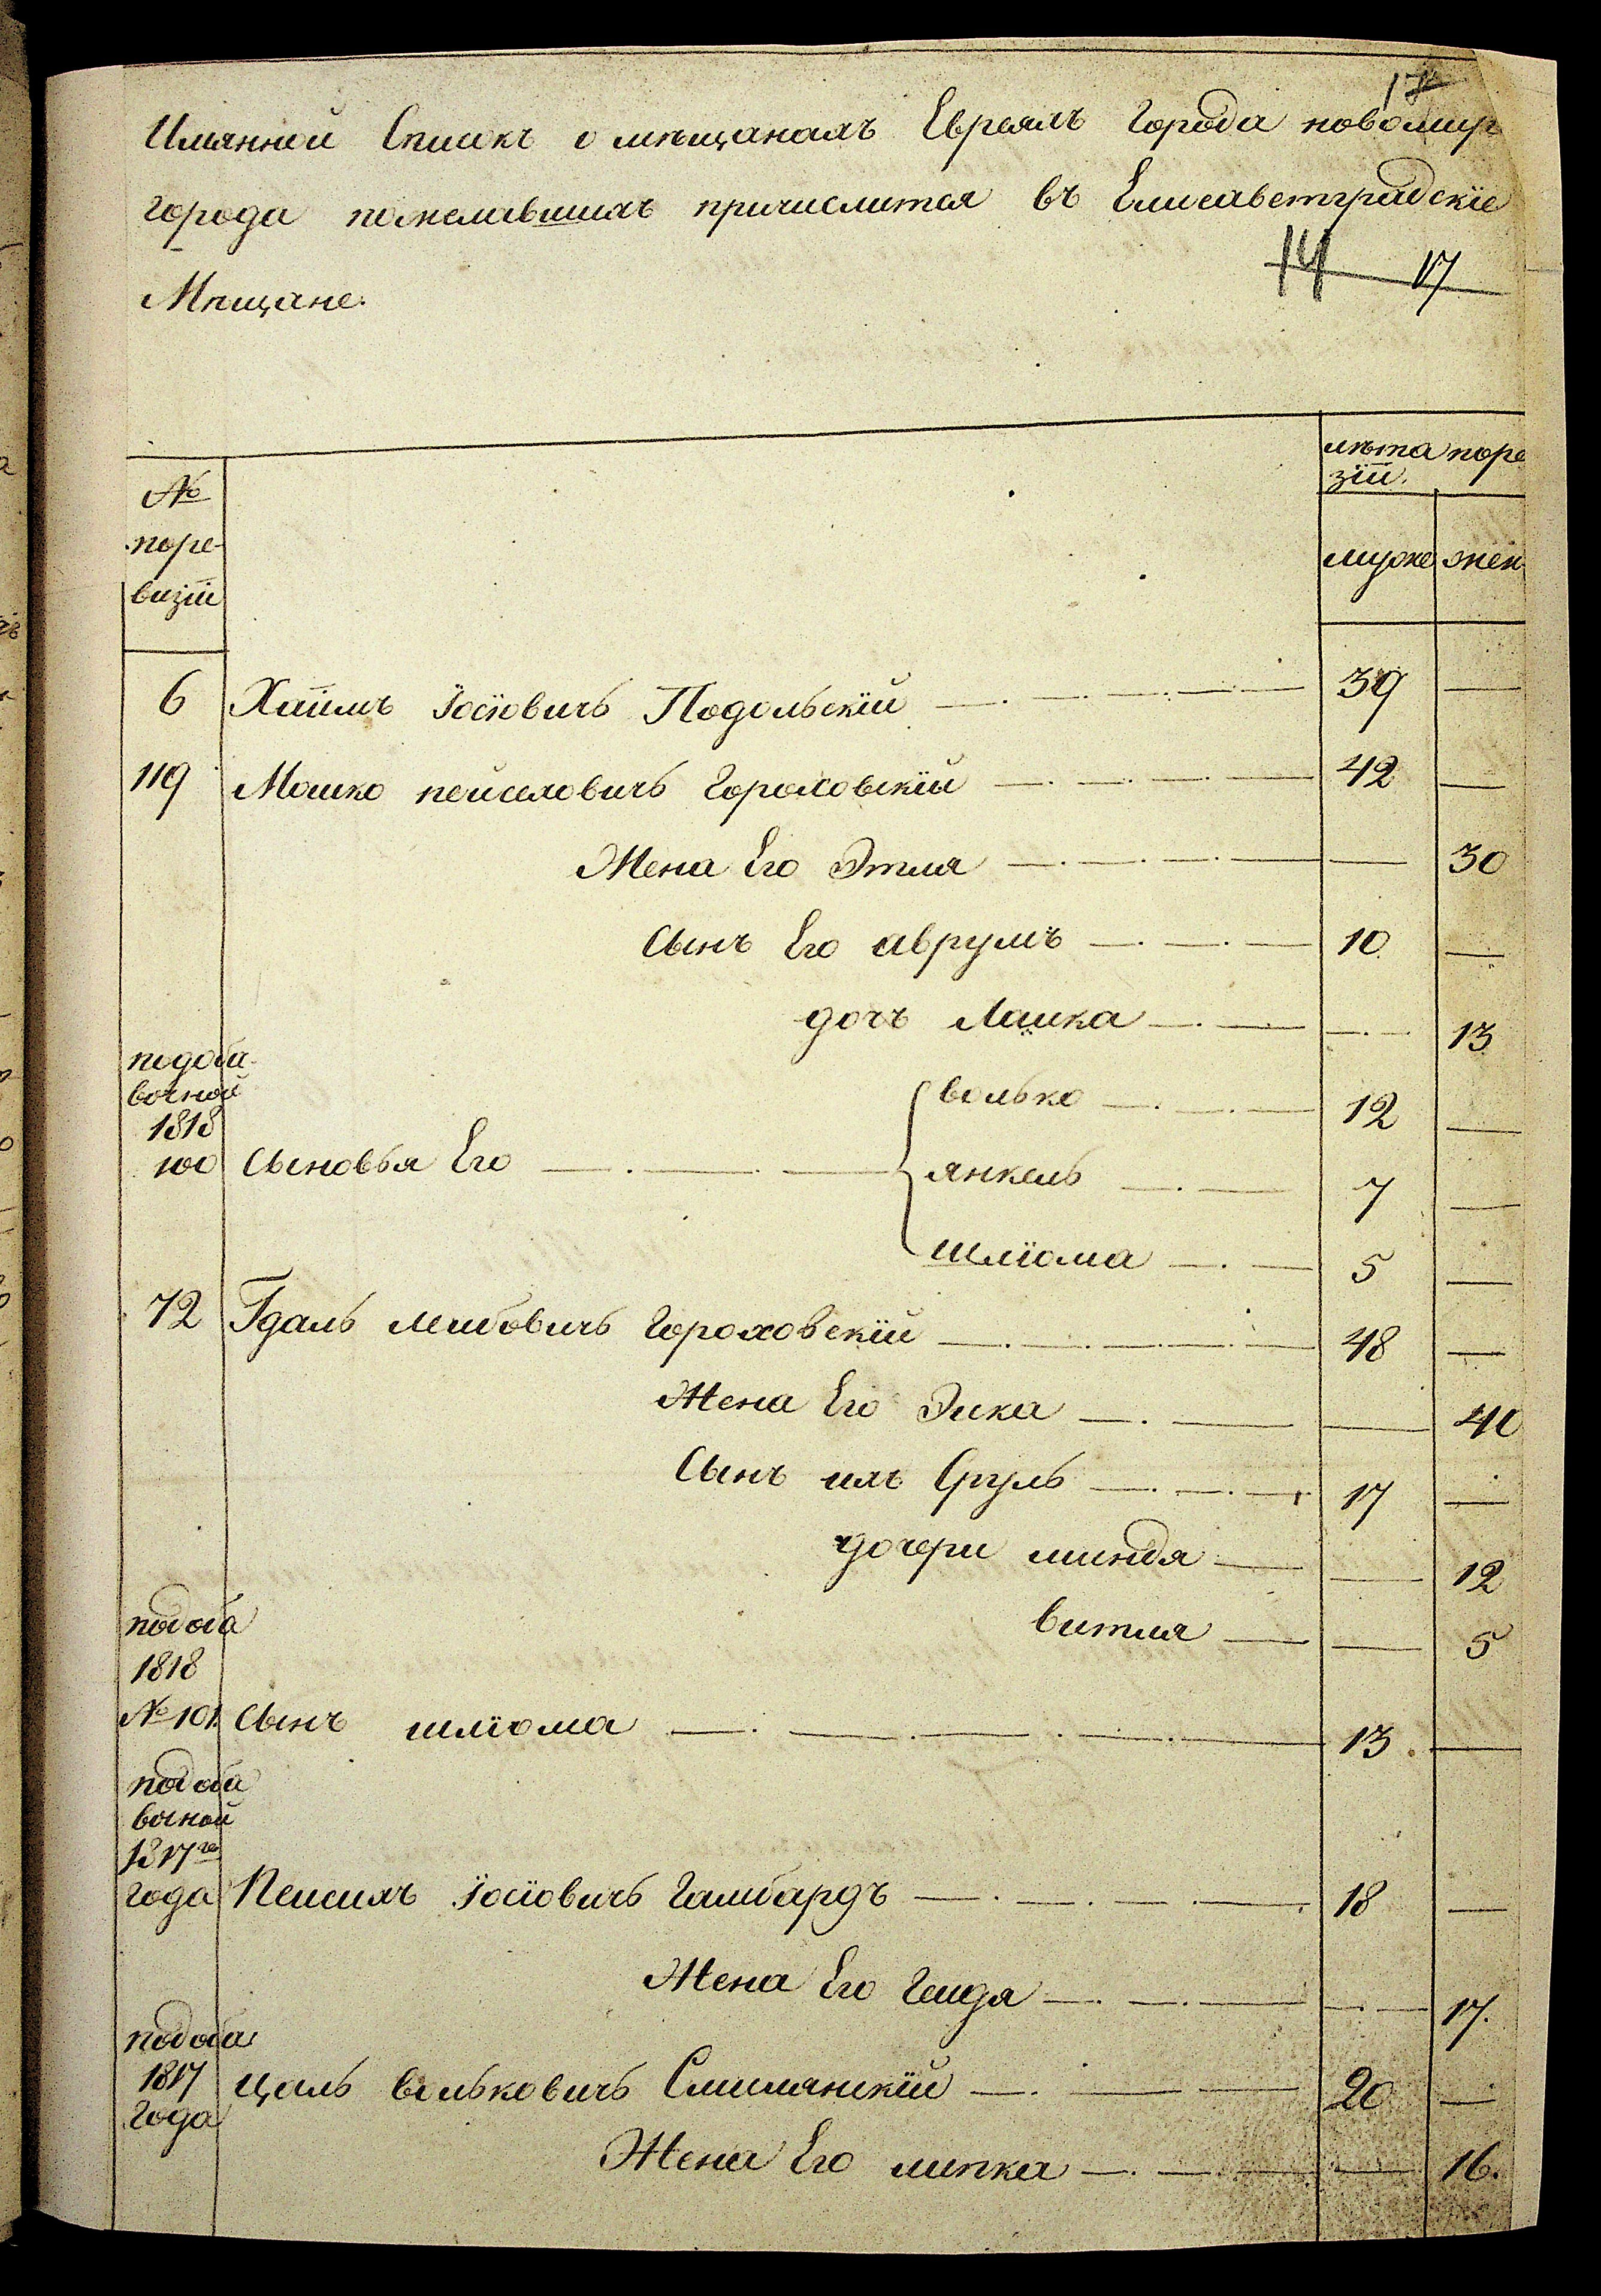 17
Имянной Списокъ о мѣщанахъ Евреяхъ города новомир
города пожелавшихъ причислится въ Елисаветградскіе
14 17
Мѣщане.
лѣта поре
зіи.
№
поре-
визіи
мужс жен
6 Хаимъ Іосіовичъ Подольскій 39
119 Мошко пейсаховичъ Гороховскій 42
Жена Его Этля 30
Сынъ Его аврумъ 10
дочъ Лашка 13
подоба-
вочной
1818
100 Сыновья Его
волько 12
янкель 7
шліома 5
72 Гдаль лейбовичъ Гороховскій 48
Жена Его Эйка 40
Сынъ ихъ Сруль 17
дочери миндя 12
витля 5
подоба
1818
№ 101. Сынъ шліома 13
подоба
вочной
1817го
года Пейсихъ Іосіовичъ Гамбардъ 18
Жена Его Гендя 17.
подоба
1817
года
цаль вольковичъ Смилянскій 20
Жена Его липка 16.